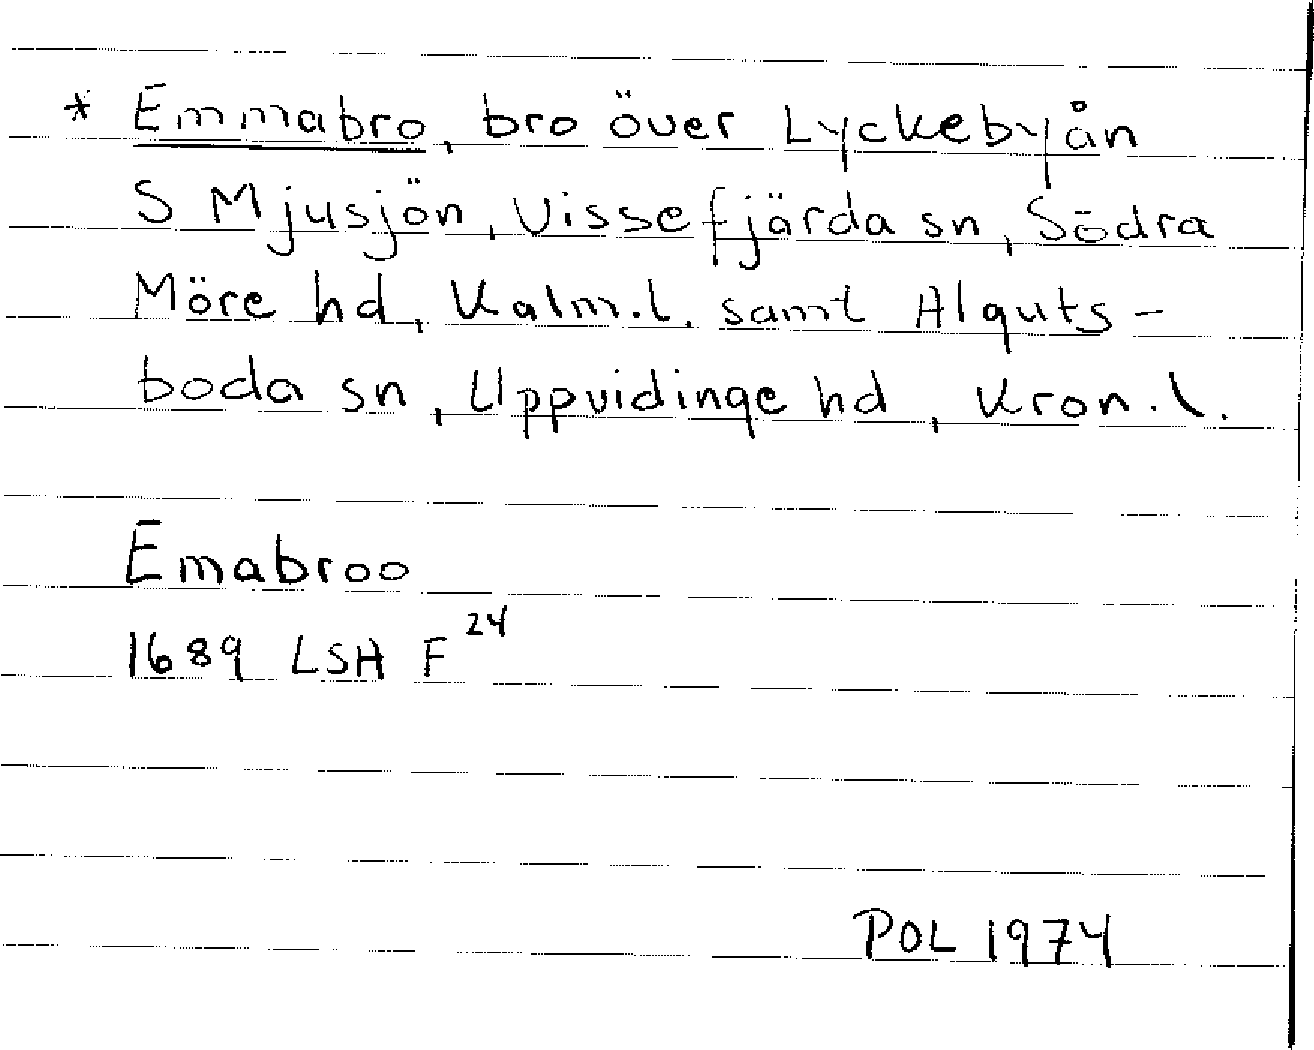 * Emmabro, bro över Lyckebyån
S Mjusjön, Vissefjärda sn, Södra
Möre hd, Kalm.l. samt Alguts-
boda sn, Uppvidinge hd, Kron.l.
Emabroo
1689 LSH F 24
POL 1974